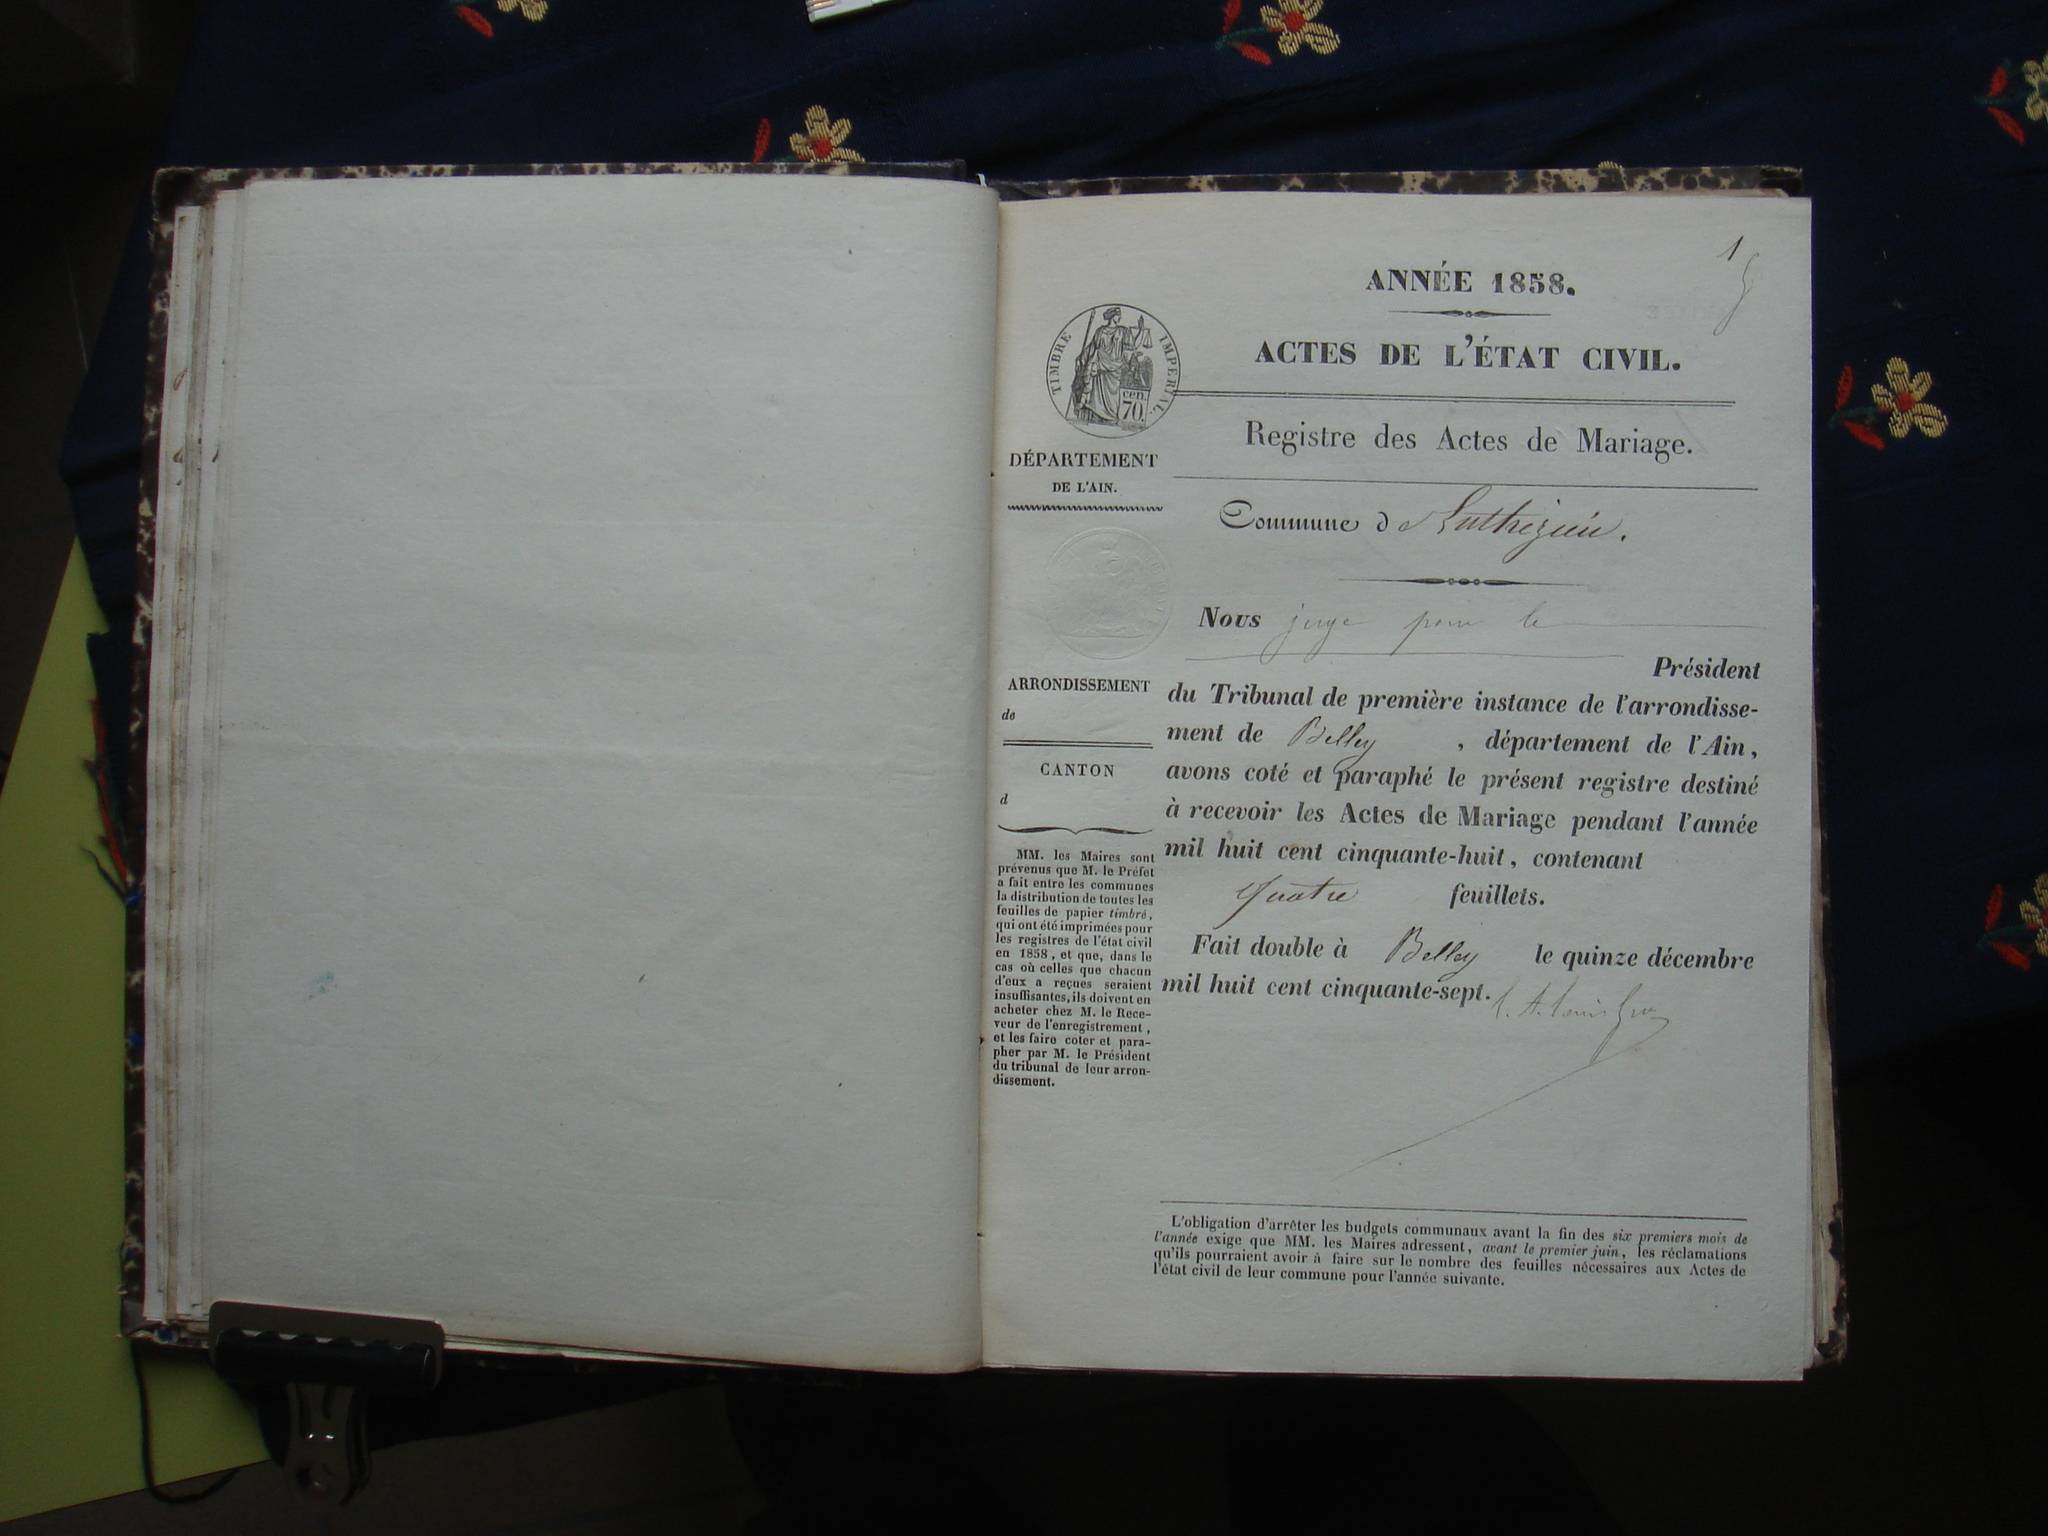 1
ANNÉE 1858.
ACTES DE L'ÉTAT CIVIL.
TIMBRE IMPERIAL
cen.
70.
Registre des Actes de Mariage.
DÉPARTEMENT
DE L'AIN.
Commune de Luthézieu.
Nous juge pour le
Président
du Tribunal de première instance de l'arrondisse-
ment de Belley, département de l'Ain,
avons coté et paraphé le présent registre destiné
à recevoir les Actes de Mariage pendant l'année
mil huit cent cinquante-huit, contenant
Quatre feuillets.
Fait double à Belley le quinze décembre
mil huit cent cinquante-sept.
ARRONDISSEMENT
de
CANTON
d
MM. les Maires sont
prévenus que M. le Préfet
a fait entre les communes
la distribution de toutes les
feuilles de papier timbré,
qui ont été imprimées pour
les registres de l'état civil
en 1858, et que, dans le
cas où celles que chacun
d'eux a reçues seraient
insuffisantes, ils doivent en
acheter chez M. le Rece-
veur de l'enregistrement,
et les faire coter et para-
pher par M. le Président
du tribunal de leur arron-
dissement.
L'obligation d'arrêter les budgets communaux avant la fin des six premiers mois de
l'année exige que MM. les Maires adressent, avant le premier juin, les réclamations
qu'ils pourraient avoir à faire sur le nombre des feuilles nécessaires aux Actes de
l'état civil de leur commune pour l'année suivante.